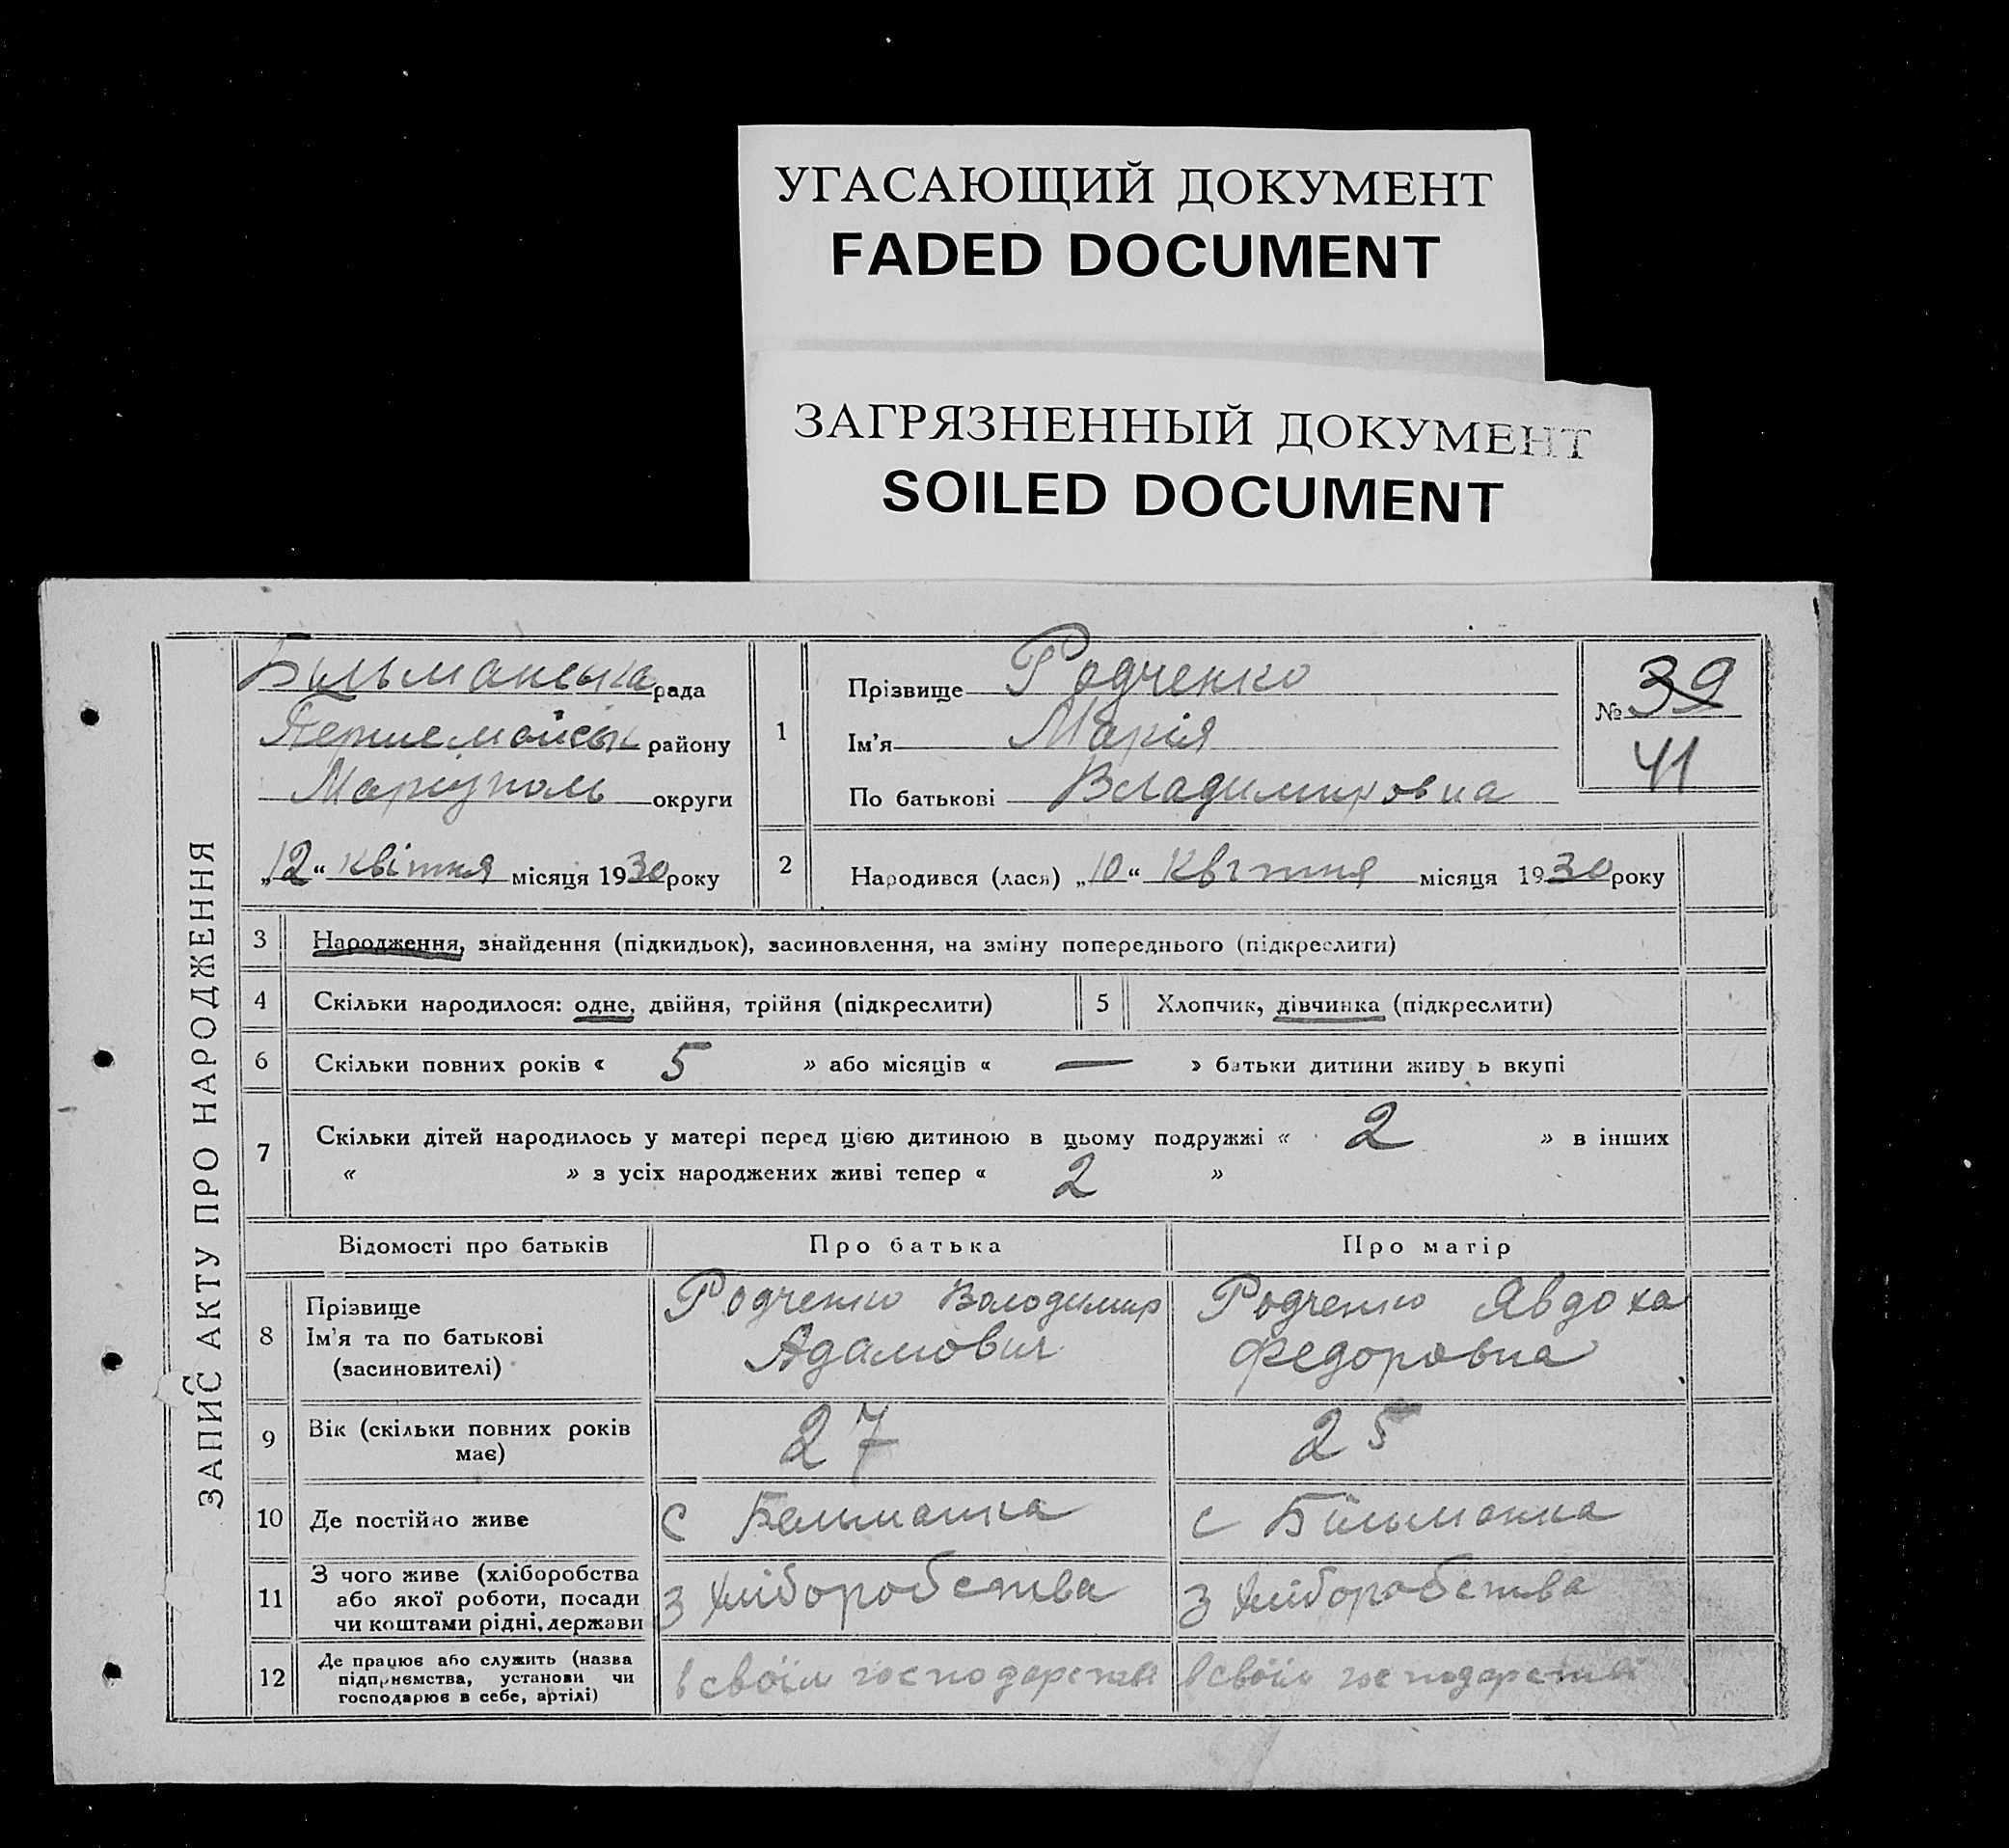 УГАСАЮЩИЙ ДОКУМЕНТ
FADED DOCUMENT
ЗАГРЯЗНЕННЫЙ ДОКУМЕНТ
SOILED DOCUMENT
ЗАПИС АКТУ ПРО НАРОДЖЕННЯ
Більманська рада
Першемайськ району
Маріуполь округи
„12“ квітня місяця 1930 року
1
Прізвище Родченко
Ім'я Марія
По батькові Владимировна
№ 39
41
2
Народився (лася) „10“ Квітня місяця 1930 року
3 Народження, знайдення (підкидьок), засиновлення, на зміну попереднього (підкреслити)
4 Скільки народилося: одне, двійня, трійня (підкреслити)
5 Хлопчик, дівчинка (підкреслити)
6 Скільки повних років « 5 » або місяців « — » батьки дитини живуть вкупі
7 Скільки дітей народилось у матері перед цією дитиною в цьому подружжі « 2 » в інших
« » з усіх народжених живі тепер « 2 »
Відомості про батьків Про батька Про матір
8
Прізвище
Ім'я та по батькові
(засиновителі)
Родченко Володимир
Адамович
Родченко Явдоха
Федоровна
9
Вік (скільки повних років
має)
27
25
10 Де постійно живе
с Бельманка
с Більманка
11
З чого живе (хліборобства
або якої роботи, посади
чи коштами рідні, держави
З хліборобства
З хліборобства
12
Де працює або служить (назва
підприємства, установи чи
господарює в себе, артілі)
в своїм господарстві
в своїм господарстві